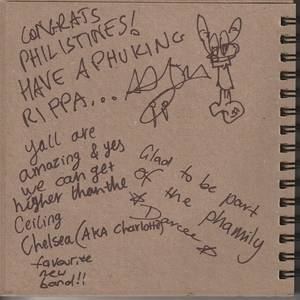 CONGRATS
PHILISTINES!
HAVE A PHUKING
RIPPA...
yall are
amazing & yes
we can get
higher than the
Ceiling
Chelsea (AKA Charlotte)
favourite
new
band!!
Glad to be part
of the phamily
Darcee